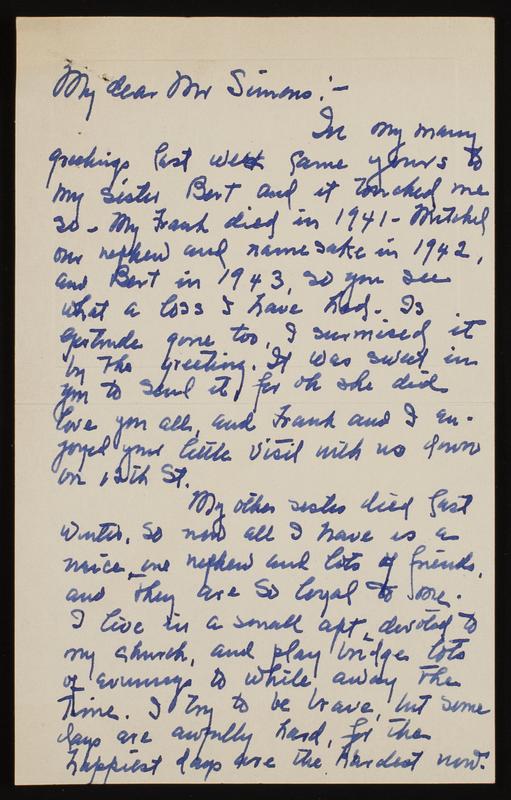 My dear Mr Simons:-
In my many
greetings last week came yours to
my sister Bert and it touched me
so - My Frank died in 1941 - Mitchel
our nephew and namesake in 1942,
and Bert in 1943, so you see
what a loss I have had. Is
Gertrude gone too, I surmised it
by the greeting. It was sweet in
you to send it, for oh she did
love you all, and Frank and I en-
joyed your little visit with us down
on 12th St.
My other sister died last
winter, so now all I have is a
neice, one nephew and lots of friends,
and they are so loyal to me.
I live in a small apt, devoted to
my church, and play bridge lots
of evenings to while away the
time. I try to be brave, but some
days are awfully hard, for the
happiest days are the hardest now.